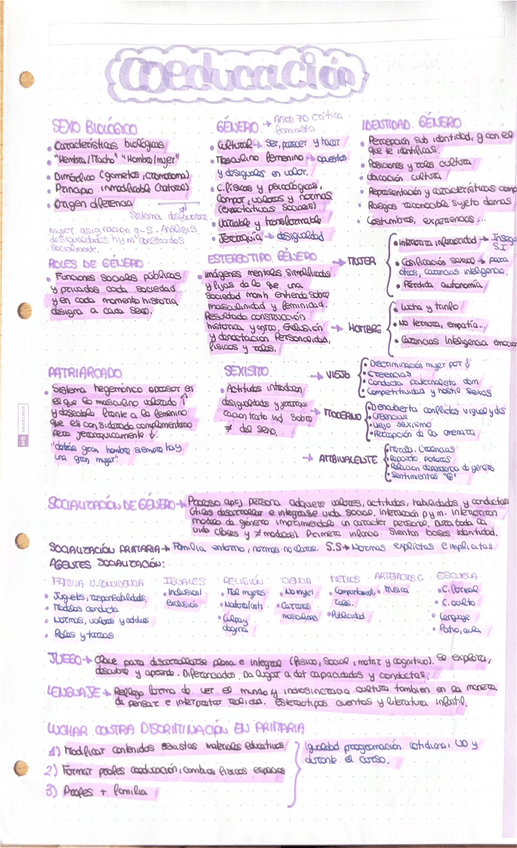 Coeducación
SEXO BIOLÓGICO
• Características biológicas
• "Hembra/Macho" "Hombre/mujer"
• Dimórfico (gametos, cromosoma)
• Principio inmodificable (natural)
• Origen diferencia
Sistema
mujer asignación
desigualdades h y m constantes
socialmente.
GÉNERO → Años 70 Crítica
feminista
• Cultural → Ser, parecer y hacer
• Masculino femenino → opuestos
y desiguales en valor.
• C. físicas y psicológicas,
compor, valores y normas
(expectativas sociales)
• Variable y transformable
• Jerarquía → desigualdad
IDENTIDAD GÉNERO
• Percepción sub identidad, g con el
que te identificas.
• Posiciones y roles cultura
• ubicación cultura
• Representación y características comp
• Rasgos reconocible sujeto demás
• Costumbres, experiencias,...
ROLES DE GÉNERO
• Funciones sociales públicas
y privadas cada sociedad
y en cada momento historia,
designa a cada sexo.
ESTEREOTIPO GÉNERO
• Imágenes mentales simplificadas
y fijas de lo que una
sociedad
masculinidad y feminidad.
Resultado construcción
histórica
y
físicos y roles.
→ MUJER
•
• Cosificación sexual → para
otros, carencias inteligencia.
• Pérdida autonomía
→ HOMBRE
• Lucha y triunfo
• No ternura, empatía..
• Carencias Inteligencia emocion
PATRIARCADO
• Sistema hegemónico opresor en
el que lo masculino valorado ↑
y deseable frente a lo femenino
que es considerado complementario
pero jerárquicamente ↓.
"detrás gran hombre siempre hay
una gran mujer".
SEXISMO
• Actitudes introducen
desigualdades y jerarqui
zación trato ind. Sobre
≠ del sexo.
→ VIEJO
• Discriminación mujer por ↓
• Creencias
• Conducta paternalista dom.
• Competitividad y hostil sexos
→ MODERNO
• Descubierta conflictos
• Creencias
• Viejo sexismo
• Percepción de la amenaza
→ AMBIVALENTE
• Creencias
•
• Relación género
• Sentimientos
SOCIALIZACIÓN DE GÉNERO → Proceso aprej. persona adquiere valores, actitudes, habilidades y conductas
útiles desarrollarse e integrarse vida social, interacción p y m. interiorizan
modelo de género imprimiéndole un carácter personal, dura toda la
vida y ≠ modelos. Primera infancia sientan bases identidad.
SOCIALIZACIÓN PRIMARIA → Familia entorno, normas no claras. S.S → Normas explícitas e implícitas
AGENTES SOCIALIZACIÓN:
FAMILIA U. CONVIVENCIA
• Juguetes, responsabilidades.
• Modelos conducta
• Normas, valores y actitudes
• Roles y tareas
IGUALES
• Inclusión/
exclusión
RELIGIÓN
• Rol mujeres
•
• Culpa y
dogma
CIENCIA
• No mujer
• Carreras
masculinas
MEDIOS
• Comportamient,
roles.
• Publicidad
ARTEFACTOS C
• Música
ESCUELA
• C. formal
• C. oculto
• Lenguaje
• Patio, aula
JUEGO → Clave para desarrollarse plena e integral (físico, social, motriz y cognitivo). Se explora,
descubre y aprende. Diferenciados. Da lugar a dat capacidades y conductas.
LENGUAJE → Refleja forma de ver el mundo y indiosincrasia cultura también en la manera
de pensar e interpretar realidad. Estereotipos cuentos y literatura infantil.
LUCHAR CONTRA DISCRIMINACIÓN EN PRIMARIA
1) Modificar contenidos sexistas materiales educativos
2) Formar profes coeducación, cambios físicos espacios
3) Profes + familia
Igualdad programación cotidiana, UD y
durante el curso.